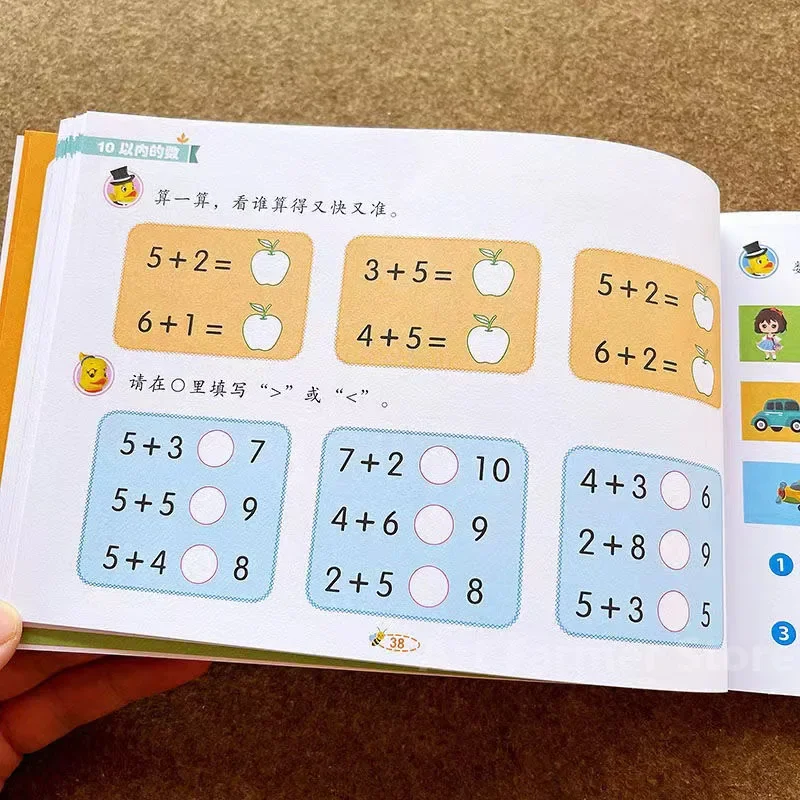 10 以内的数
算一算，看谁算得又快又准。
5+2=
6+1=
3+5=
4+5=
5+2=
6+2=
请在○里填写“>”或“<”。
5+3○7
5+5○9
5+4○8
7+2○10
4+6○9
2+5○8
4+3○6
2+8○9
5+3○5
38
1
3
Store